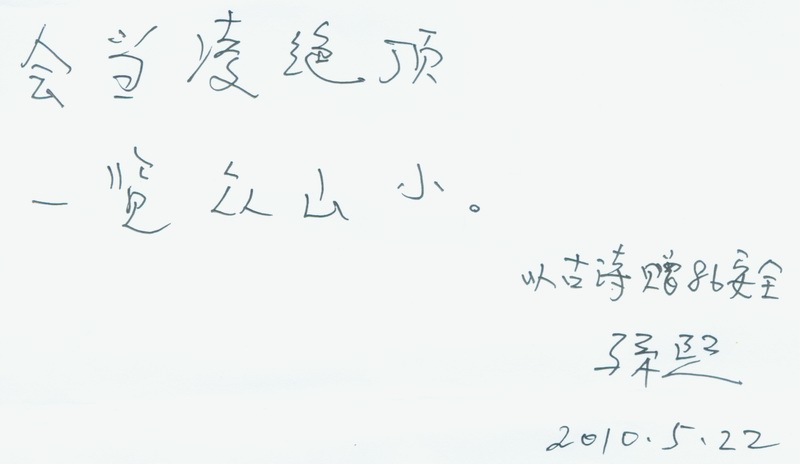 会当凌绝顶
一览众山小。
以古诗赠86安全
2010.5.22